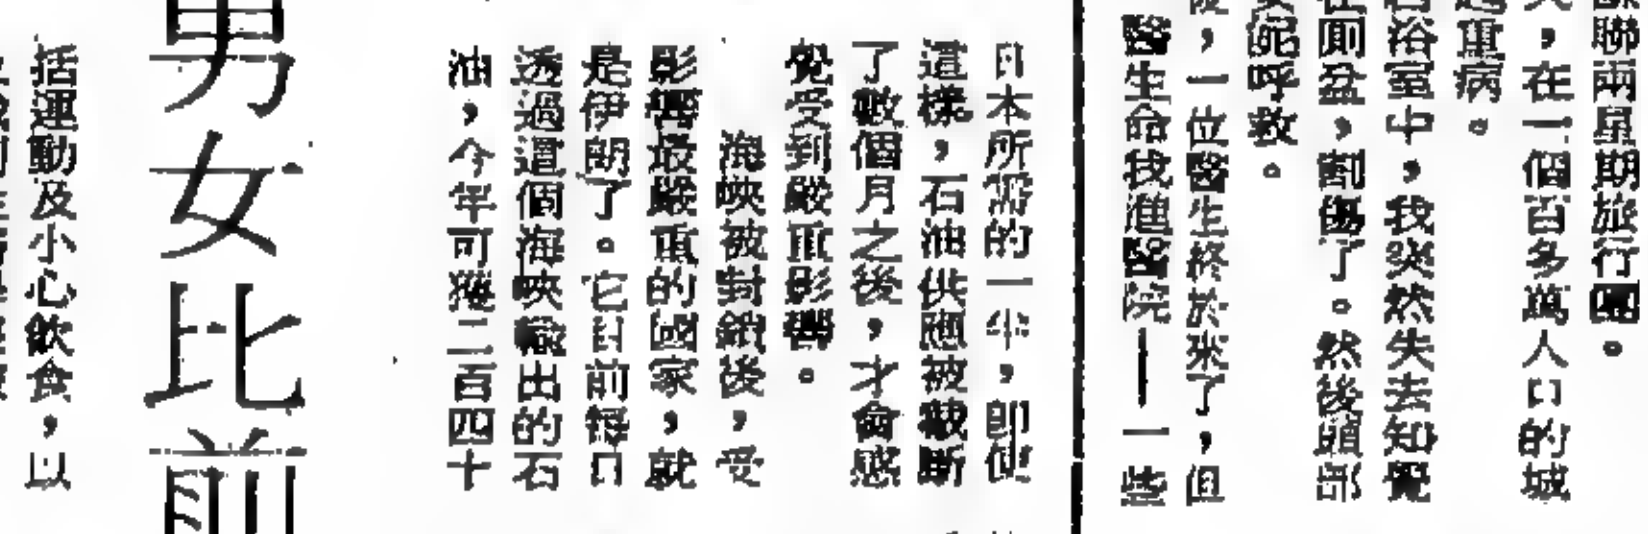 聯兩星期旅行團。
，在一個百多萬人口的城
重病。
浴室中，我突然失去知覺
廁盆，割傷了。然後頭部
呼救。
，一位醫生終於來了，但
醫生命我進醫院——一些
日本所需的一半，即使
這樣，石油供應被截斷
了數個月之後，才會感
覺受到嚴重影響。
海峽被封鎖後，受
影響最嚴重的國家，就
是伊朗了。它目前每日
透過這個海峽輸出的石
油，今年可獲二百四十
男女比前
括運動及小心飲食，以